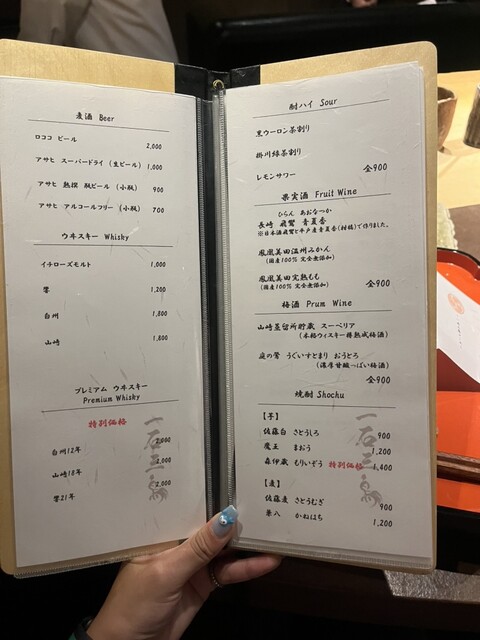 麦酒 Beer
ロココ ビール 2,000
アサヒ スーパードライ (生ビール) 1,000
アサヒ 熟撰 瓶ビール (小瓶) 900
アサヒ アルコールフリー (小瓶) 700
ウヰスキー Whisky
イチローズモルト 1,000
響 1,200
白州 1,800
山崎 1,800
プレミアム ウヰスキー
Premium Whisky
特別価格
白州12年 2,000
山崎18年 2,000
響21年 2,000
一石三鳥
酎ハイ Sour
黒ウーロン茶割り
掛川緑茶割り
レモンサワー 全900
果実酒 Fruit Wine
ひらん あおなつか
長崎 飛鸞 青夏香
※日本酒飛鸞と平戸産青夏香(柑橘)で作りました。
鳳凰美田温州みかん
(国産100% 完全無添加)
鳳凰美田完熟もも
(国産100% 完全無添加) 全900
梅酒 Prum Wine
山崎蒸留所貯蔵 スーペリア
(本格ウィスキー樽熟成梅酒)
庭の鶯 うぐいすとまり おうとろ
(濃厚甘酸っぱい梅酒)
全900
焼酎 Shochu
【芋】
佐藤白 さとうしろ 900
魔王 まおう 1,200
森伊蔵 もりいぞう 特別価格 1,400
【麦】
佐藤麦 さとうむぎ 900
兼八 かねはち 1,200
一石三鳥